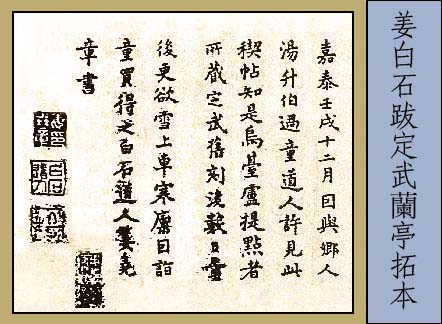 姜白石跋定武蘭亭拓本
嘉泰壬戌十二月因與鄉人
湯升伯過童道人許見此
稧帖知是烏臺盧提點者
所藏定武舊刻後數日雪
後更欲雪上車寒廩目詣
童買得之白石道人姜堯
章書